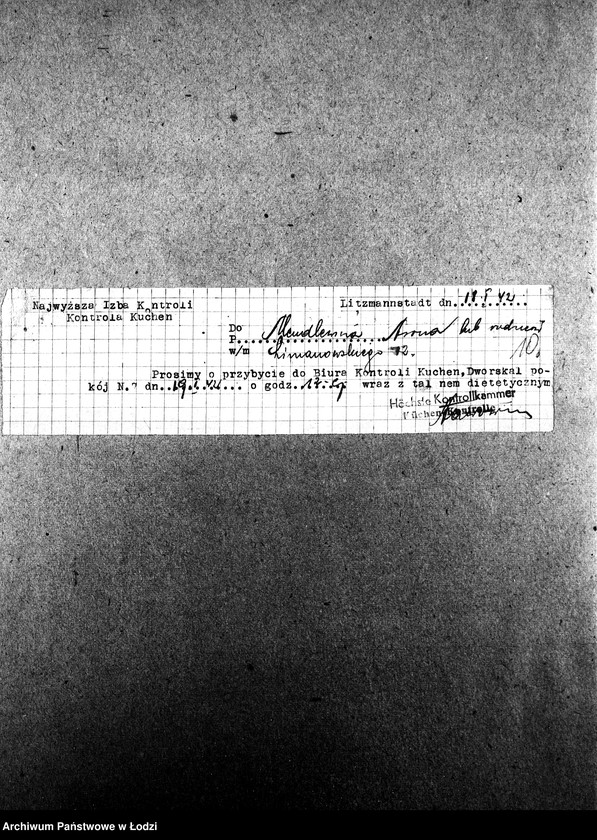 Najwyższa Izba Kontroli
Kontrola Kuchen
Litzmannstadt dn. 19.I 42
Do
P. Mendlewicz Arona lub rodzice
w/m Limanowskiego 12.
10.
Prosimy o przybycie do Biura Kontroli Kuchen, Dworska1 po-
kój N.7 dn. 19.I.42. o godz. 17 wraz z tal nem dietetycznym
Höchste Kontrollkammer
Küchen-Kontrolle
Archiwum Państwowe w Łodzi